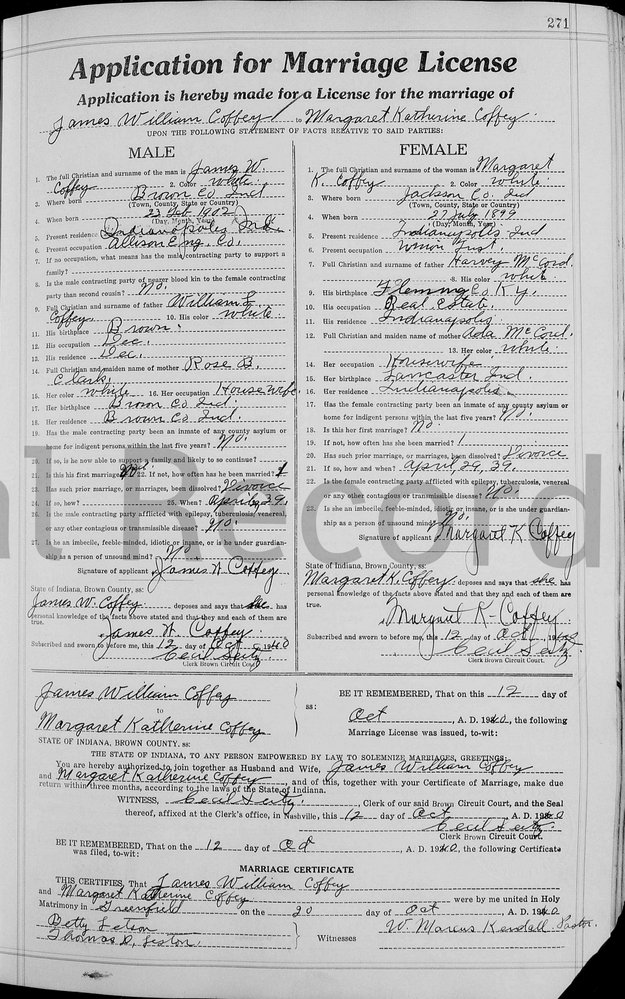 271
Application for Marriage License
Application is hereby made for a License for the marriage of
James William Coffey to Margaret Katherine Coffey
UPON THE FOLLOWING STATEMENT OF FACTS RELATIVE TO SAID PARTIES:
MALE
1. The full Christian and surname of the man is James W.
Coffey 2. Color White
3. Where born Brown Co Ind
(Town, County, State or Country)
4. When born 23 Feb 1902
(Day, Month, Year)
5. Present residence Indianapolis Ind.
6. Present occupation Allison Eng. Co.
7. If no occupation, what means has the male contracting party to support a
family?
8. Is the male contracting party of nearer blood kin to the female contracting
party than second cousin? No.
9. Full Christian and surname of father William
Coffey. 10. His color White
11. His birthplace Brown.
12. His occupation Dec.
13. His residence Dec.
14. Full Christian and maiden name of mother Rose B.
Clark.
15. Her color White 16. Her occupation Housewife.
17. Her birthplace Brown Co Ind.
18. Her residence Brown Co Ind.
19. Has the male contracting party been an inmate of any county asylum or
home for indigent persons within the last five years? No.
20. If so, is he now able to support a family and likely to so continue?
21. Is this his first marriage? No. 22. If not, how often has he been married? 1
23. Has such prior marriage, or marriages, been dissolved? Divorce
24. If so, how? 25. When? April 39.
26. Is the male contracting party afflicted with epilepsy, tuberculosis, venereal,
or any other contagious or transmissible disease? No.
27. Is he an imbecile, feeble-minded, idiotic or insane, or is he under guardian-
ship as a person of unsound mind? No.
Signature of applicant James W. Coffey
State of Indiana, Brown County, ss:
James W. Coffey deposes and says that he has
personal knowledge of the facts above stated and that they and each of them are
true.
James W. Coffey
Subscribed and sworn to before me, this 12 day of Oct 1940
Cecil Seitz
Clerk Brown Circuit Court.
FEMALE
1. The full Christian and surname of the woman is Margaret
K. Coffey 2. Color White.
3. Where born Jackson Co. Ind
(Town, County, State or Country)
4. When born 27 July 1899
(Day, Month, Year)
5. Present residence Indianapolis Ind
6. Present occupation Union Trust.
7. Full Christian and surname of father Harvey McCord.
8. His color White.
9. His birthplace Fleming Co Ky.
10. His occupation Real Estate.
11. His residence Indianapolis
12. Full Christian and maiden name of mother Ada McCord.
13. Her color White.
14. Her occupation Housewife
15. Her birthplace Lancaster Ind.
16. Her residence Indianapolis
17. Has the female contracting party been an inmate of any county asylum or
home for indigent persons within the last five years? No.
18. Is this her first marriage? No.
19. If not, how often has she been married? 1
20. Has such prior marriage, or marriages, been dissolved? Divorce
21. If so, how and when? April 29, 39.
22. Is the female contracting party afflicted with epilepsy, tuberculosis, venereal
or any other contagious or transmissible disease? No.
23. Is she an imbecile, feeble-minded, idiotic or insane, or is she under guardian-
ship as a person of unsound mind? No.
Signature of applicant Margaret K Coffey
State of Indiana, Brown County, ss:
Margaret K. Coffey deposes and says that she has
personal knowledge of the facts above stated and that they and each of them are
true.
Margaret K. Coffey
Subscribed and sworn to before me, this 12 day of Oct, 1940
Cecil Seitz
Clerk Brown Circuit Court.
James William Coffey
to
Margaret Katherine Coffey
ss:
BE IT REMEMBERED, That on this 12 day of
Oct, A. D. 1940, the following
Marriage License was issued, to-wit:
STATE OF INDIANA, BROWN COUNTY, ss:
THE STATE OF INDIANA, TO ANY PERSON EMPOWERED BY LAW TO SOLEMNIZE MARRIAGES, GREETING:
You are hereby authorized to join together as Husband and Wife, James William Coffey
and Margaret Katherine Coffey, and of this, together with your Certificate of Marriage, make due
return within three months, according to the laws of the State of Indiana.
WITNESS, Cecil Seitz, Clerk of our said Brown Circuit Court, and the Seal
thereof, affixed at the Clerk's office, in Nashville, this 12 day of Oct, A. D. 1940
Cecil Seitz
Clerk Brown Circuit Court.
BE IT REMEMBERED, That on the 12 day of Oct, A. D. 1940, the following Certificate
was filed, to-wit:
MARRIAGE CERTIFICATE
THIS CERTIFIES, That James William Coffey
and Margaret Katherine Coffey were by me united in Holy
Matrimony in Greenfield on the 20 day of Oct, A. D. 1940.
W. Marcus Kendall Pastor.
Betty
Thomas
Witnesses
Record